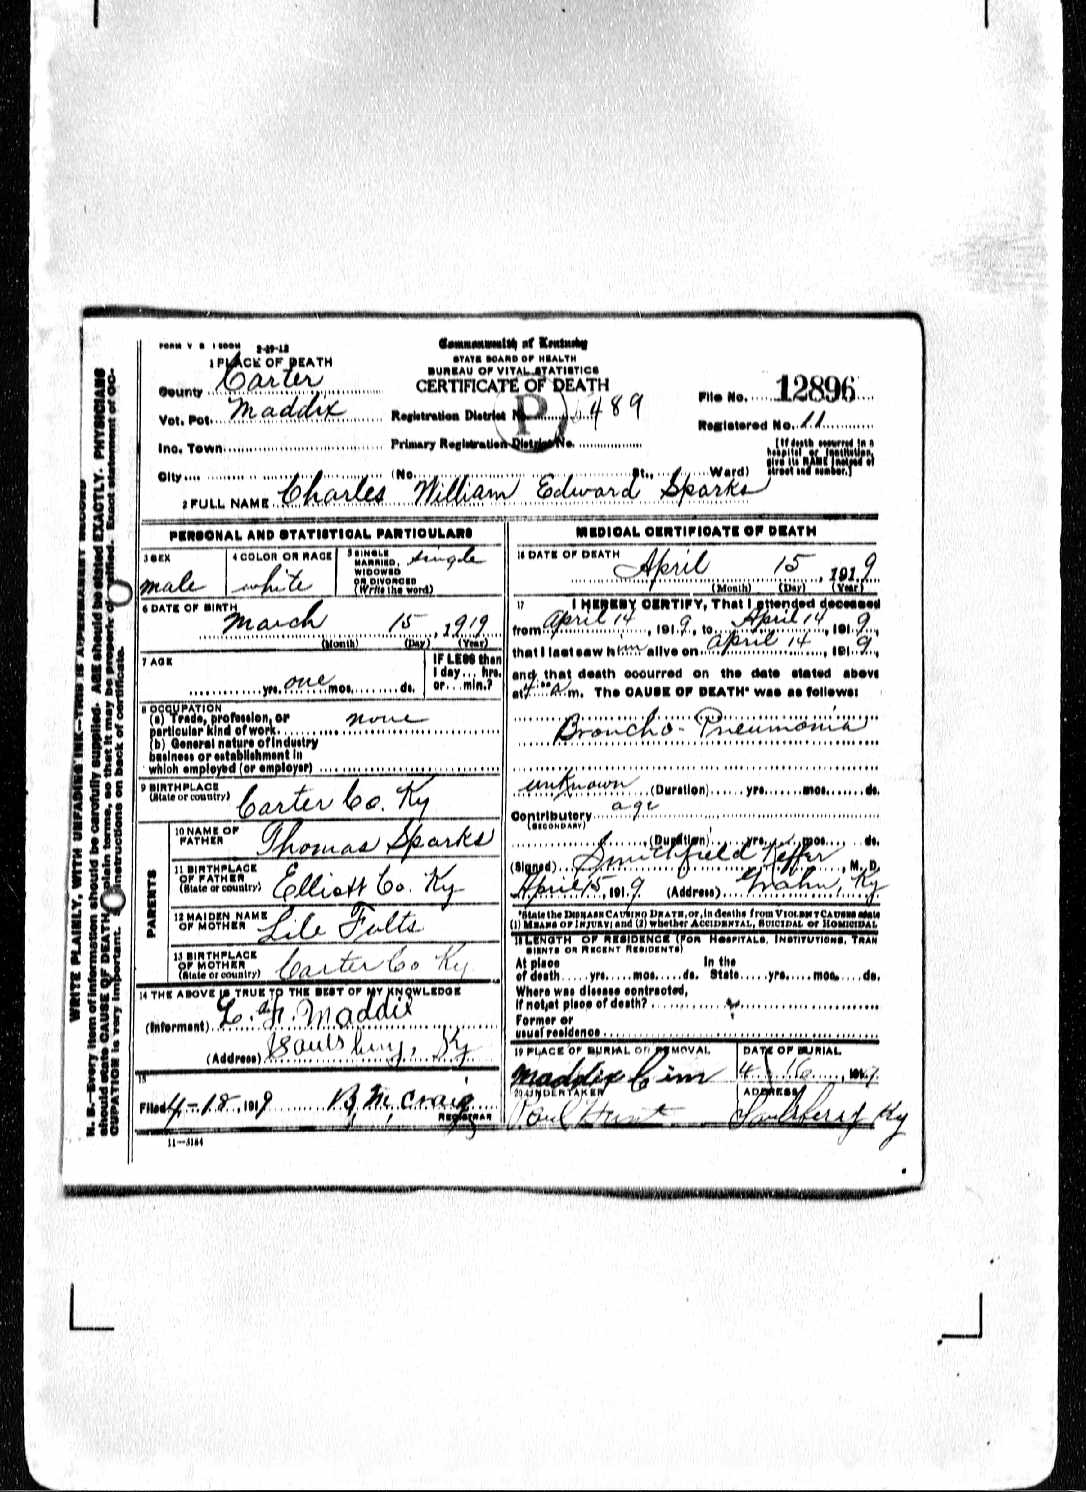 FORM V S 1 500M 2-29-12
Commonwealth of Kentucky
STATE BOARD OF HEALTH
BUREAU OF VITAL STATISTICS
CERTIFICATE OF DEATH
1 PLACE OF DEATH
County Carter
Vot. Pct. Maddix
Inc. Town
City (No. St., Ward)
Registration District No. 489
P
Primary Registration District No.
File No. 12896
Registered No. 11
[If death occurred in a
hospital or institution,
give its NAME instead of
street and number.]
2 FULL NAME Charles William Edward Sparks
PERSONAL AND STATISTICAL PARTICULARS
3 SEX
male
4 COLOR OR RACE
white
5 SINGLE
MARRIED,
WIDOWED
OR DIVORCED
(Write the word)
single
6 DATE OF BIRTH
March 15, 1919
(Month) (Day) (Year)
7 AGE
yrs. one mos. ds.
IF LESS than
1 day... hrs.
or... min.?
8 OCCUPATION
(a) Trade, profession, or
particular kind of work none
(b) General nature of industry
business or establishment in
which employed (or employer)
9 BIRTHPLACE
(State or country) Carter Co. Ky
PARENTS
10 NAME OF
FATHER Thomas Sparks
11 BIRTHPLACE
OF FATHER
(State or country) Elliott Co. Ky
12 MAIDEN NAME
OF MOTHER Lile Fults
13 BIRTHPLACE
OF MOTHER
(State or country) Carter Co Ky
14 THE ABOVE IS TRUE TO THE BEST OF MY KNOWLEDGE
(Informant) Maddix
(Address) Saulsberry, Ky
15
Filed 4-18, 1919 McCraig
REGISTRAR
11-3184
MEDICAL CERTIFICATE OF DEATH
16 DATE OF DEATH
April 15, 1919
(Month) (Day) (Year)
17 I HEREBY CERTIFY, That I attended deceased
from April 14, 1919, to April 14, 1919,
that I last saw him alive on April 14, 1919,
and that death occurred on the date stated above
at 4 a m. The CAUSE OF DEATH* was as follows:
Broncho-Pneumonia
unknown (Duration) yrs. mos. ds.
Contributory age
(SECONDARY)
(Duration) yrs. mos. ds.
(Signed) Smithfield Keffer, M. D.
April 15, 1919 (Address) Grahn, Ky
*State the DISEASE CAUSING DEATH, or, in deaths from VIOLENT CAUSES state
(1) MEANS OF INJURY; and (2) whether ACCIDENTAL, SUICIDAL OR HOMICIDAL
18 LENGTH OF RESIDENCE (FOR HOSPITALS, INSTITUTIONS, TRAN
SIENTS OR RECENT RESIDENTS)
At place In the
of death yrs. mos. ds. State yrs. mos. ds.
Where was disease contracted,
if not at place of death?
Former or
usual residence
19 PLACE OF BURIAL OR REMOVAL
Maddix Cem
DATE OF BURIAL
4 16, 1919
20 UNDERTAKER
Paul Hunt
ADDRESS
Saulsberry Ky
WRITE PLAINLY, WITH UNFADING INK—THIS IS A PERMANENT RECORD
N. B.—Every item of information should be carefully supplied. AGE should be stated EXACTLY. PHYSICIANS
should state CAUSE OF DEATH in plain terms, so that it may be properly classified. Exact statement of OC-
CUPATION is very important. See instructions on back of certificate.